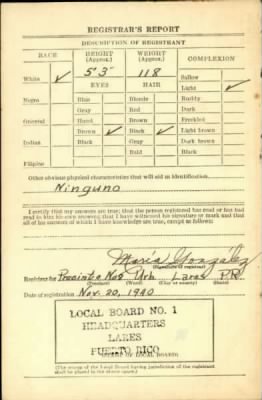 REGISTRAR'S REPORT
DESCRIPTION OF REGISTRANT
RACE HEIGHT (Approx.) WEIGHT (Approx.) COMPLEXION
White ✓ 5'3" 118 Sallow
Light ✓
EYES HAIR
Negro Blue Blonde Ruddy
Gray Red Dark
Oriental Hazel Brown Freckled
Brown ✓ Black ✓ Light brown
Indian Black Gray Dark brown
Bald Black
Filipino
Other obvious physical characteristics that will aid in identification
Ninguno
I certify that my answers are true; that the person registered has read or has had
read to him his own answers; that I have witnessed his signature or mark and that
all of his answers of which I have knowledge are true, except as follows:
María González
(Signature of registrar)
Registrar for Precinto No Urb. Lares P.R.
(Precinct) (Ward) (City or county) (State)
Date of registration Nov. 20, 1940
LOCAL BOARD NO. 1
HEADQUARTERS
LARES
PUERTO RICO
(STAMP OF LOCAL BOARD)
(The stamp of the Local Board having jurisdiction of the registrant
shall be placed in the above space.)